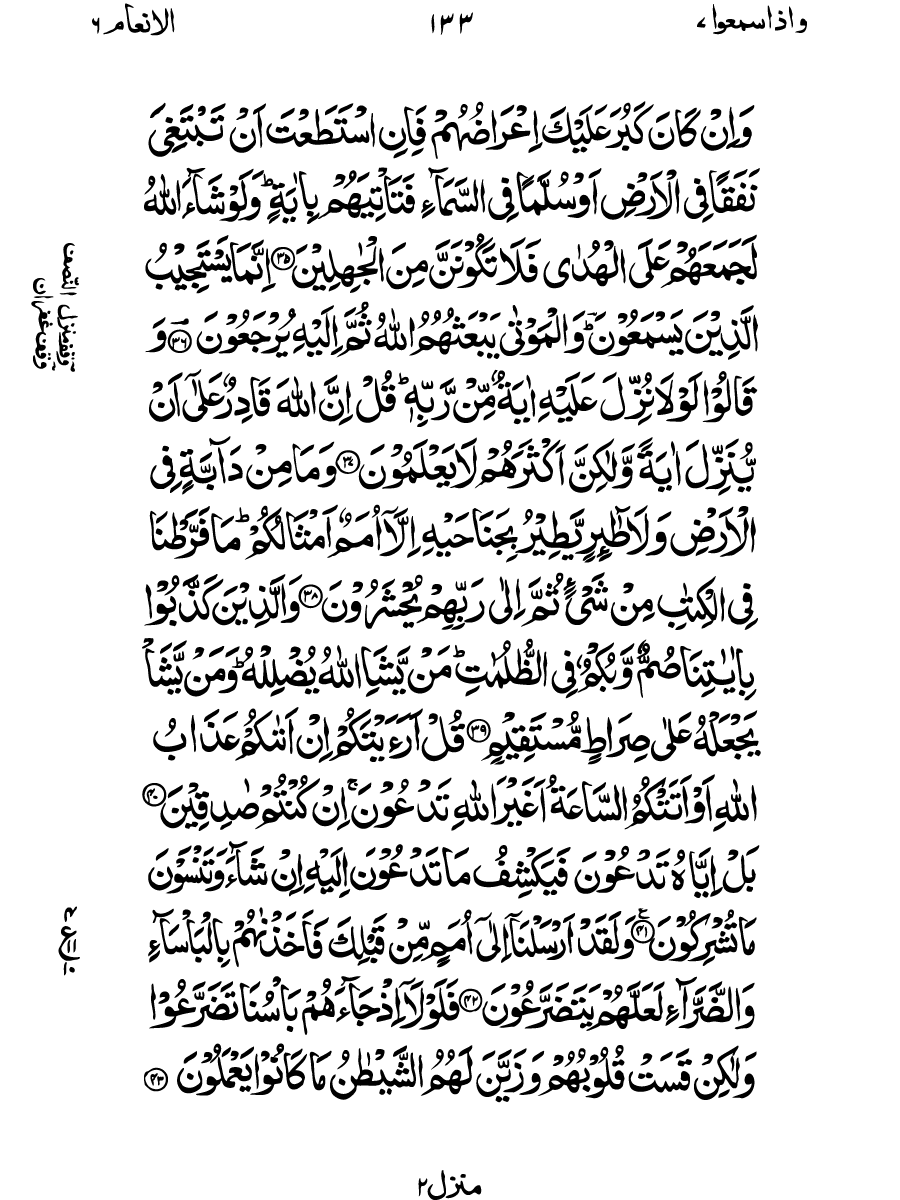 واذاسمعوا ٧
١٣٣
الانعام ٦
وَاِنْ كَانَ كَبُرَ عَلَيْكَ اِعْرَاضُهُمْ فَاِنِ اسْتَطَعْتَ اَنْ تَبْتَغِىَ
نَفَقًا فِى الْاَرْضِ اَوْ سُلَّمًا فِى السَّمَآءِ فَتَاْتِيَهُمْ بِاٰيَةٍ ؕ وَلَوْ شَآءَ اللّٰهُ
لَجَمَعَهُمْ عَلَى الْهُدٰى فَلَا تَكُوْنَنَّ مِنَ الْجٰهِلِيْنَ ﴿۳۵﴾ اِنَّمَا يَسْتَجِيْبُ
الَّذِيْنَ يَسْمَعُوْنَ ؕ وَالْمَوْتٰى يَبْعَثُهُمُ اللّٰهُ ثُمَّ اِلَيْهِ يُرْجَعُوْنَ ﴿۳۶﴾ وَ
قَالُوْا لَوْلَا نُزِّلَ عَلَيْهِ اٰيَةٌ مِّنْ رَّبِّهٖ ؕ قُلْ اِنَّ اللّٰهَ قَادِرٌ عَلٰٓى اَنْ
يُّنَزِّلَ اٰيَةً وَّلٰكِنَّ اَكْثَرَهُمْ لَا يَعْلَمُوْنَ ﴿۳۷﴾ وَمَا مِنْ دَآبَّةٍ فِى
الْاَرْضِ وَلَا طٰٓئِرٍ يَّطِيْرُ بِجَنَاحَيْهِ اِلَّاۤ اُمَمٌ اَمْثَالُكُمْ ؕ مَا فَرَّطْنَا
فِى الْكِتٰبِ مِنْ شَىْءٍ ثُمَّ اِلٰى رَبِّهِمْ يُحْشَرُوْنَ ﴿۳۸﴾ وَالَّذِيْنَ كَذَّبُوْا
بِاٰيٰتِنَا صُمٌّ وَّبُكْمٌ فِى الظُّلُمٰتِ ؕ مَنْ يَّشَاِ اللّٰهُ يُضْلِلْهُ ؕ وَمَنْ يَّشَاْ
يَجْعَلْهُ عَلٰى صِرَاطٍ مُّسْتَقِيْمٍ ﴿۳۹﴾ قُلْ اَرَءَيْتَكُمْ اِنْ اَتٰىكُمْ عَذَابُ
اللّٰهِ اَوْ اَتَتْكُمُ السَّاعَةُ اَغَيْرَ اللّٰهِ تَدْعُوْنَ ۚ اِنْ كُنْتُمْ صٰدِقِيْنَ ﴿۴۰﴾
بَلْ اِيَّاهُ تَدْعُوْنَ فَيَكْشِفُ مَا تَدْعُوْنَ اِلَيْهِ اِنْ شَآءَ وَتَنْسَوْنَ
مَا تُشْرِكُوْنَ ﴿۴۱﴾ وَلَقَدْ اَرْسَلْنَاۤ اِلٰٓى اُمَمٍ مِّنْ قَبْلِكَ فَاَخَذْنٰهُمْ بِالْبَاْسَآءِ
وَالضَّرَّآءِ لَعَلَّهُمْ يَتَضَرَّعُوْنَ ﴿۴۲﴾ فَلَوْلَاۤ اِذْ جَآءَهُمْ بَاْسُنَا تَضَرَّعُوْا
وَلٰكِنْ قَسَتْ قُلُوْبُهُمْ وَزَيَّنَ لَهُمُ الشَّيْطٰنُ مَا كَانُوْا يَعْمَلُوْنَ ﴿۴۳﴾
النّصف
وقف منزل
وقف غفران
منزل ٢